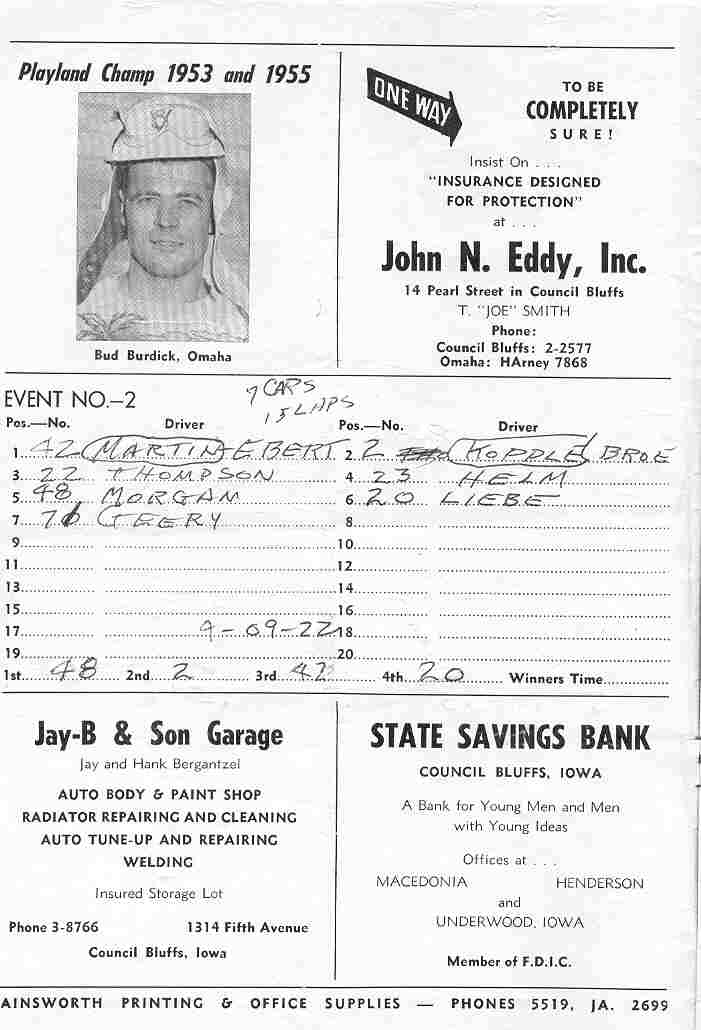 Playland Champ 1953 and 1955
Bud Burdick, Omaha
ONE WAY
TO BE
COMPLETELY
SURE!
Insist On . . .
"INSURANCE DESIGNED
FOR PROTECTION"
at . . .
John N. Eddy, Inc.
14 Pearl Street in Council Bluffs
T. "JOE" SMITH
Phone:
Council Bluffs: 2-2577
Omaha: HArney 7868
EVENT NO.—2
7 CARS
15 LAPS
Pos.—No. Driver Pos.—No. Driver
1 42 MARTIN EBERT 2 2 KOPPLE BROE
3 22 THOMPSON 4 23 HELM
5 48 MORGAN 6 20 LIEBE
7 76 GEERY 8
9 10
11 12
13 14
15 16
17 9-09-22 18
19 20
1st 48 2nd 2 3rd 42 4th 20 Winners Time
Jay-B & Son Garage
Jay and Hank Bergantzel
AUTO BODY & PAINT SHOP
RADIATOR REPAIRING AND CLEANING
AUTO TUNE-UP AND REPAIRING
WELDING
Insured Storage Lot
Phone 3-8766 1314 Fifth Avenue
Council Bluffs, Iowa
STATE SAVINGS BANK
COUNCIL BLUFFS, IOWA
A Bank for Young Men and Men
with Young Ideas
Offices at . . .
MACEDONIA HENDERSON
and
UNDERWOOD, IOWA
Member of F.D.I.C.
AINSWORTH PRINTING & OFFICE SUPPLIES — PHONES 5519, JA. 2699